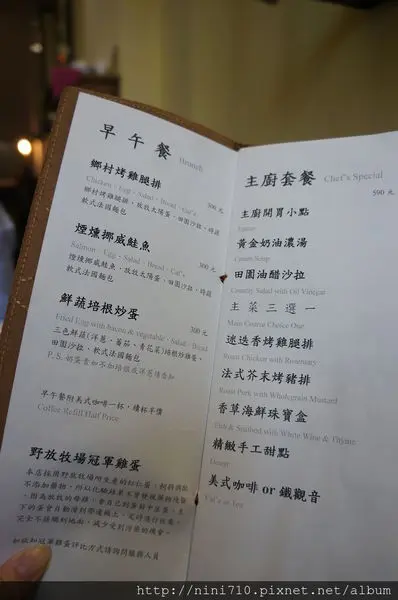 早午餐 Brunch
鄉村烤雞腿排 300元
Chicken、Egg、Salad、Bread
鄉村烤雞腿排、放牧太陽蛋、田園沙拉、時蔬
軟式法國麵包
煙燻挪威鮭魚 300元
Salmon、Egg、Salad、Bread
煙燻挪威鮭魚、放牧太陽蛋、田園沙拉、時蔬
軟式法國麵包
鮮蔬培根炒蛋 300元
Fried Egg with bacon & vegetable、Salad、Bread
三色鮮蔬(洋蔥、蕃茄、青花菜)培根炒雞蛋、
田園沙拉、軟式法國麵包
P.S. 奶蛋素如不加培根或洋蔥請告知
早午餐附美式咖啡一杯，續杯半價
Coffee Refill Half Price
野放牧場冠軍雞蛋
如欲知冠軍雞蛋評比方式請詢問服務人員
主廚套餐 Chef's Special
590元
主廚開胃小點
黃金奶油濃湯
Cream Soup
田園油醋沙拉
Country Salad with Oil Vinegar
主菜三選一
Main Course Choice One
迷迭香烤雞腿排
Roast Chicken with Rosemary
法式芥末烤豬排
Roast Pork with Wholegrain Mustard
香草海鮮珠寶盒
Fish & Seafood with White Wine & Thyme
精緻手工甜點
Dessert
美式咖啡 or 鐵觀音
http://nini710.pixnet.net/album